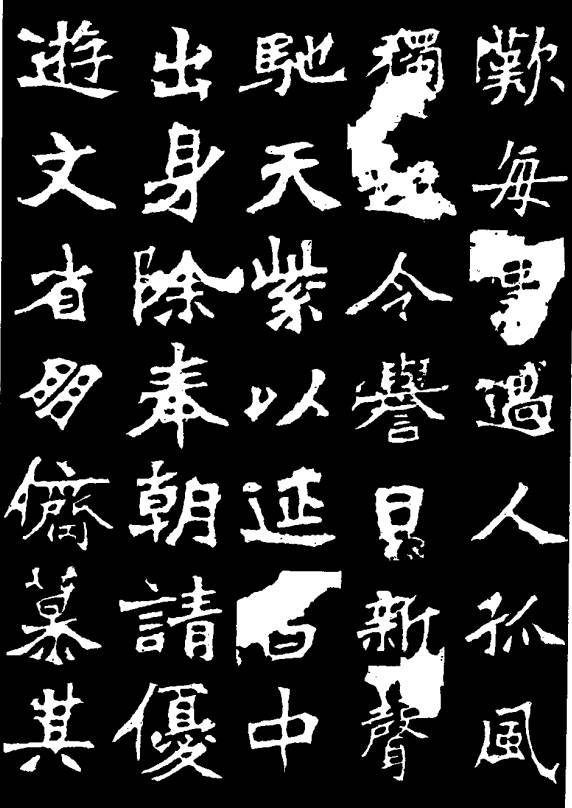 歎每事過人孤風
獨超令譽日新聲
馳天紫以延昌中
出身除奉朝請優
遊文省朋儕慕其